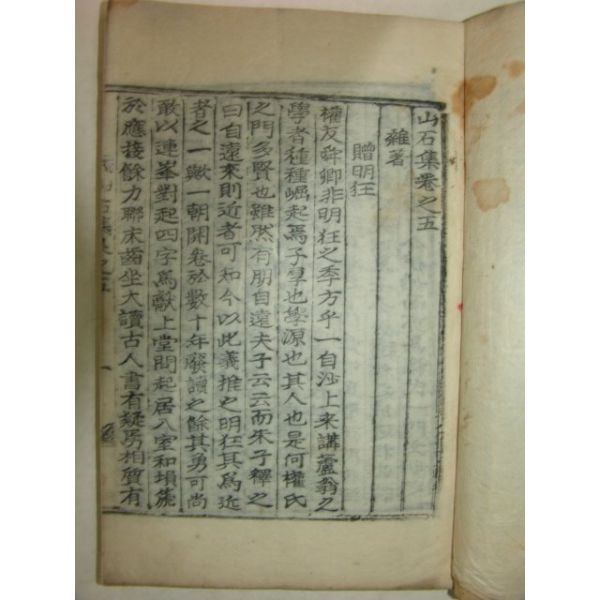 山石集卷之五
雜著
贈明狂
權友舜卿非明狂之季方乎一自沙上來講蘆翁之
學者種種崛起焉子厚也學源也其人也是何權氏
之門多賢也雖然有朋自遠夫子云云而朱子釋之
曰自遠來則近者可知今以此義推之明狂其爲近
者之一歟一朝開卷於數十年廢讀之餘其勇可尚
敢以連峯對起四字爲獻上堂問起居入室和塤篪
於應接餘力聯床齒坐大讀古人書有疑焉相質有
山石集卷之五
一